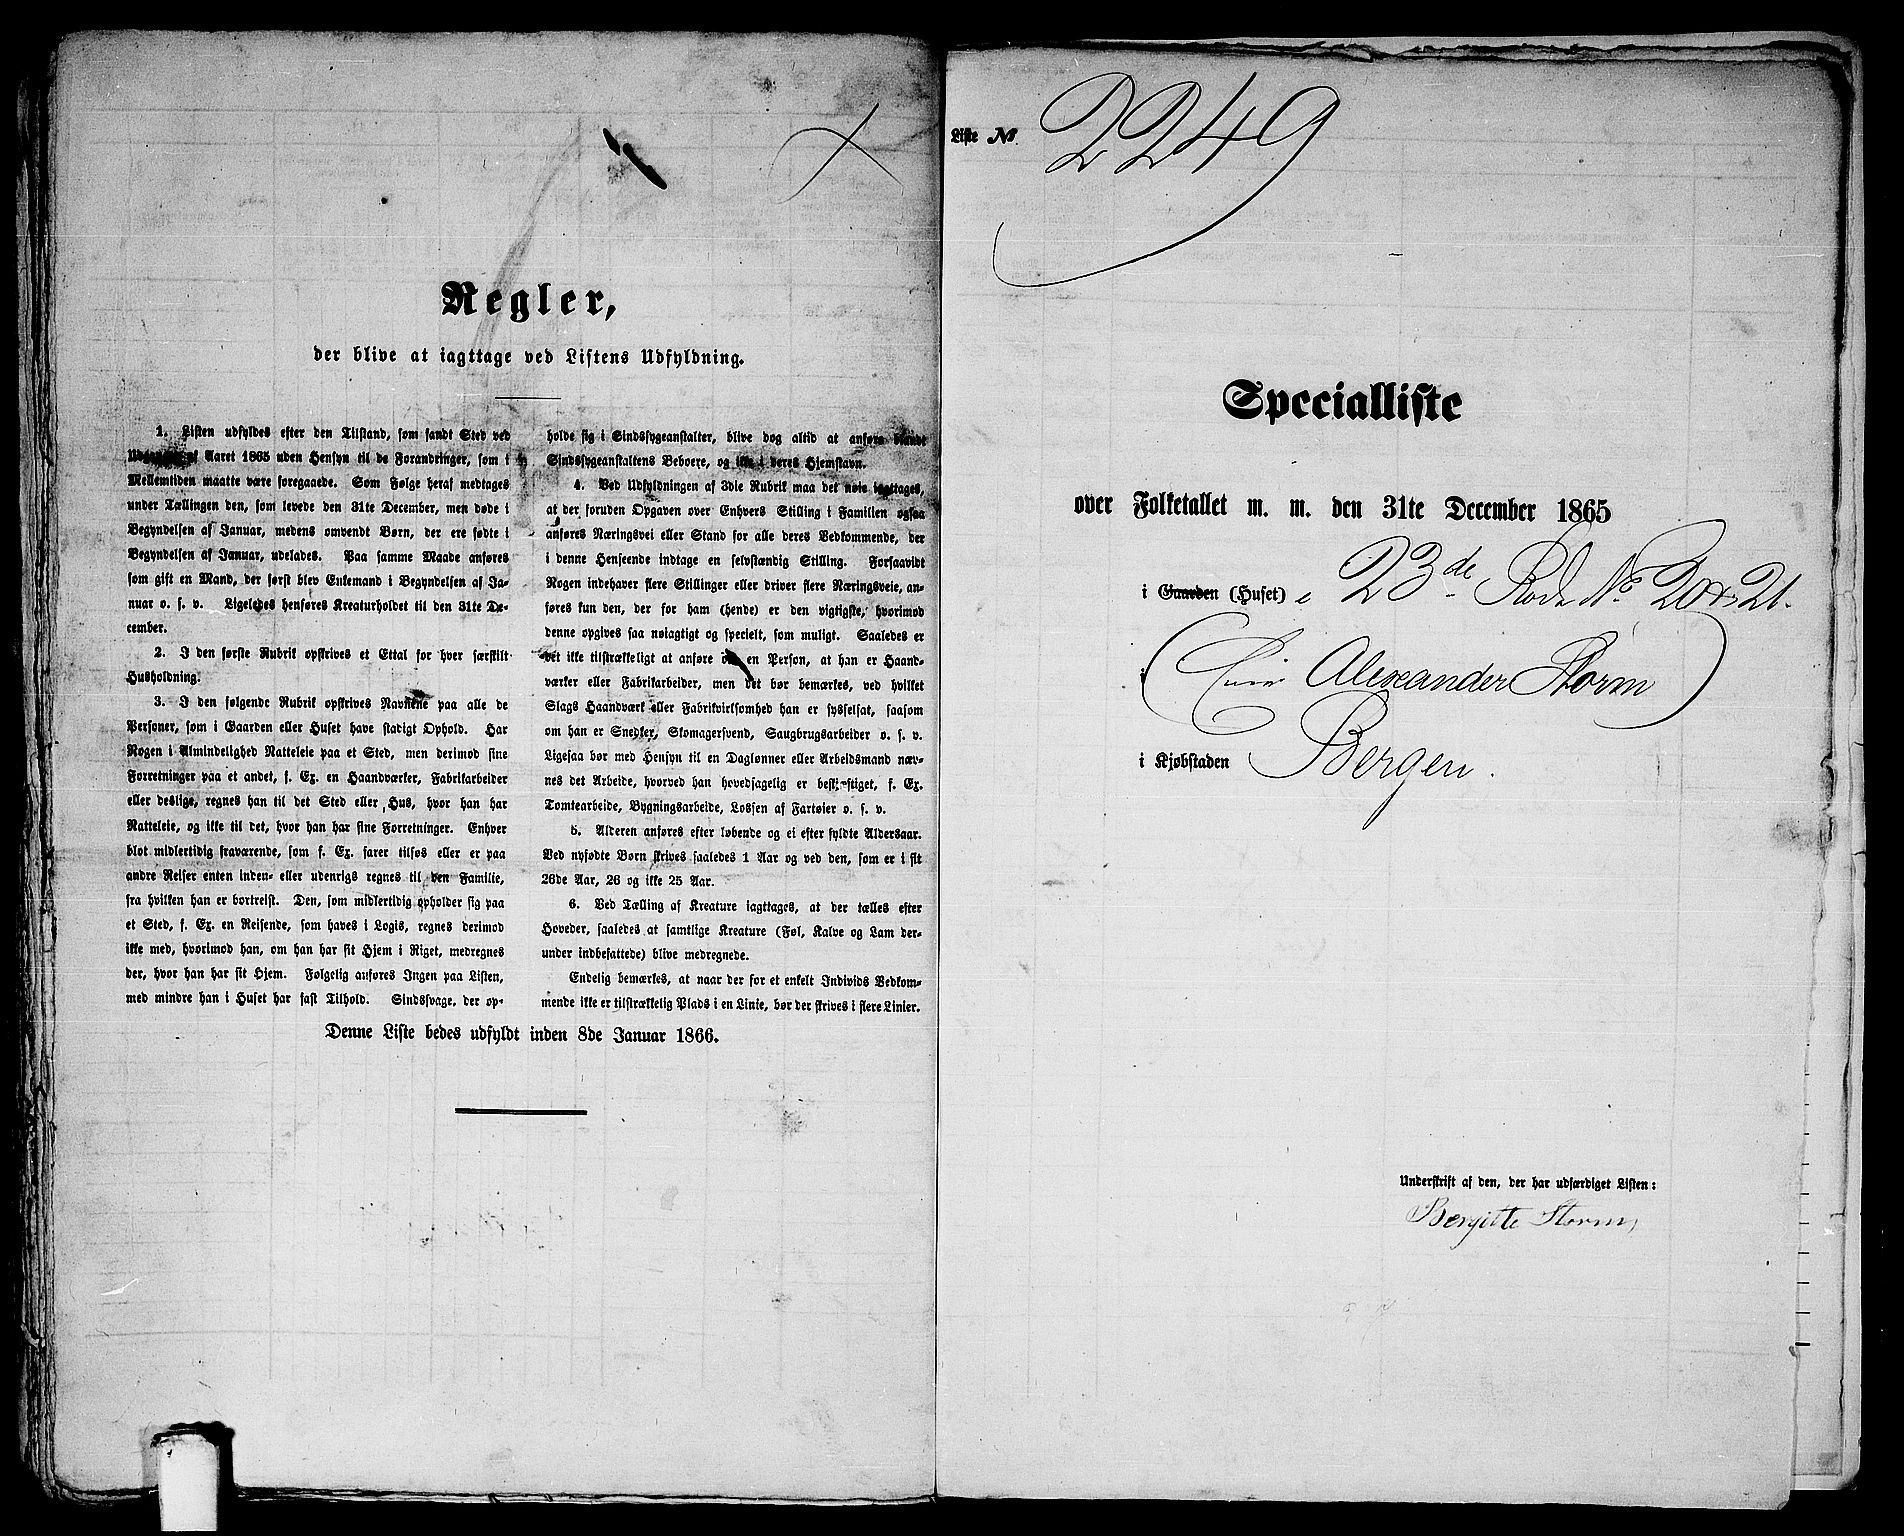 Regler,
der blive at iagttage ved Listens Udfyldning.
1. Listen udfyldes efter den Tilstand, som fandt Sted ved
Udgangen af Aaret 1865 uden Hensyn til de Forandringer, som i
Mellemtiden maatte være foregaaede. Som Følge heraf medtages
under Tællingen den, som levede den 31te December, men døde i
Begyndelsen af Januar, medens omvendt Børn, der ere fødte i
Begyndelsen af Januar, udelades. Paa samme Maade anføres
som gift en Mand, der først blev Enkemand i Begyndelsen af Ja-
nuar o. s. v. Ligeledes henføres Kreaturholdet til den 31te De-
cember.
2. I den første Rubrik opskrives et Ettal for hver særskilt
Husholdning.
3. I den følgende Rubrik opskrives Navnene paa alle de
Personer, som i Gaarden eller Huset have stadigt Ophold. Har
Nogen i Almindelighed Natteleie paa et Sted, men derimod sine
Forretninger paa et andet, f. Ex. en Haandværker, Fabrikarbeider
eller deslige, regnes han til det Sted eller Hus, hvor han har
Natteleie, og ikke til det, hvor han har sine Forretninger. Enhver
blot midlertidig fraværende, som f. Ex. farer tilsøs eller er paa
andre Reiser enten inden- eller udenrigs regnes til den Familie,
fra hvilken han er bortreist. Den, som midlertidig opholder sig paa
et Sted, f. Ex. en Reisende, som haves i Logis, regnes derimod
ikke med, hvorimod han, om han har sit Hjem i Riget, medregnes
der, hvor han har sit Hjem. Følgelig anføres Ingen paa Listen,
med mindre han i Huset har fast Tilhold. Sindssvage, der op-
holde sig i Sindssygeanstalter, blive dog altid at anføre blandt
Sindssygeanstaltens Beboere, og ikke i deres Hjemstavn.
4. Ved Udfyldningen af 3die Rubrik maa det nøie iagttages,
at der foruden Opgaven over Enhvers Stilling i Familien ogsaa
anføres Næringsvei eller Stand for alle deres Vedkommende, der
i denne Henseende indtage en selvstændig Stilling. Forsaavidt
Nogen indehaver flere Stillinger eller driver flere Næringsveie, an-
føres kun den, der for ham (hende) er den vigtigste, hvorimod
denne opgives saa nøiagtigt og specielt, som muligt. Saaledes er
det ikke tilstrækkeligt at anføre om en Person, at han er Haand-
værker eller Fabrikarbeider, men det bør bemærkes, ved hvilket
Slags Haandværk eller Fabrikvirksomhed han er sysselsat, saasom
om han er Snedker, Skomagersvend, Saugbrugsarbeider o. s. v.
Ligesaa bør med Hensyn til en Daglønner eller Arbeidsmand næv-
nes det Arbeide, hvorved han hovedsagelig er beskjeftiget, f. Ex.
Tomtearbeide, Bygningsarbeide, Lossen af Fartøier o. s. v.
5. Alderen anføres efter løbende og ei efter fyldte Aldersaar.
Ved nyfødte Børn skrives saaledes 1 Aar og ved den, som er i sit
26de Aar, 26 og ikke 25 Aar.
6. Ved Tælling af Kreature iagttages, at der tælles efter
Hoveder, saaledes at samtlige Kreature (Føl, Kalve og Lam der-
under indbefattede) blive medregnede.
Endelig bemærkes, at naar der for et enkelt Individs Vedkom-
mende ikke er tilstrækkelig Plads i en Linie, bør der skrives i flere Linier.
Denne Liste bedes udfyldt inden 8de Januar 1866.
Liste No 2249
Specialliste
over Folketallet m. m. den 31te December 1865
i Gaarden (Huset) i 23de Rode No 20 & 21.
i Alexander Storm
i Kjøbstaden Bergen.
Underskrift af den, der har udfærdiget Listen:
Bergitte Storm